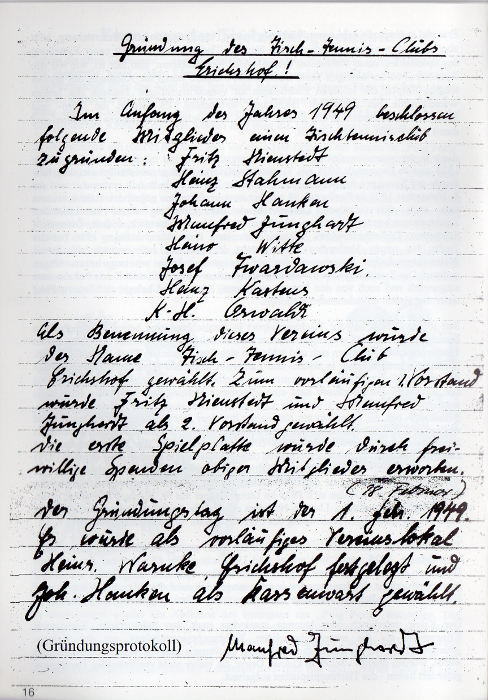 Gründung des Tisch-Tennis-Clubs
Erichshof!
Im Anfang des Jahres 1949 beschlossen
folgende Mitglieder einen Tischtennisclub
zugründen: Fritz Nienstedt
Heinz Stahmann
Johann Hanken
Manfred Junghardt
Heino Witte
Josef Twardawski.
Heinz Kastens
K.H. Oswald
Als Benennung dieses Vereins wurde
der Name Tisch-Tennis-Club
Erichshof gewählt. Zum vorläufigen 1. Vorstand
wurde Fritz Nienstedt und Manfred
Junghardt als 2. Vorstand gewählt.
Die erste Spielplatte wurde durch frei-
willige Spenden obiger Mitglieder erworben.
Februar)
Der Gründungstag ist der 1. Febr. 1949.
Es wurde als vorläufiges Vereinslokal
Heinr. Warnke, Erichshof festgelegt und
Joh. Hanken als Kassenwart gewählt.
(Gründungsprotokoll) Manfred Junghardt
16